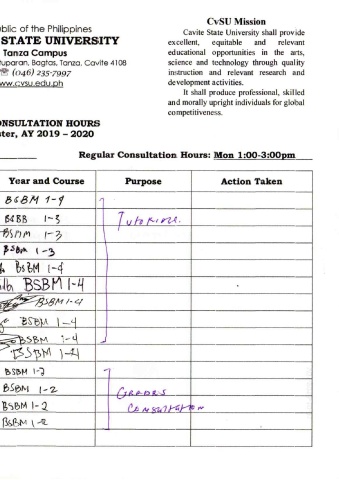 blic of the Philippines
STATE UNIVERSITY
Tanza Campus
tuparan, Bagtas, Tanza, Cavite 4108
☏ (046) 235-7997
www.cvsu.edu.ph
CvSU Mission
Cavite State University shall provide
excellent, equitable and relevant
educational opportunities in the arts,
science and technology through quality
instruction and relevant research and
development activities.
It shall produce professional, skilled
and morally upright individuals for global
competitiveness.
ONSULTATION HOURS
ster, AY 2019 – 2020
Regular Consultation Hours: Mon 1:00-3:00pm
Year and Course Purpose Action Taken
BSBM 1-4
BSBB 1-3 Tutoring
BSMM 1-3
BSBM 1-3
BSBM 1-4
BSBM 1-4
BSBM 1-4
BSBM 1-4
BSBM 1-4
BSBM 1-4
BSBM 1-2
BSBM 1-2 GRADES
BSBM 1-2 CONSULTATION
BSBM 1-2